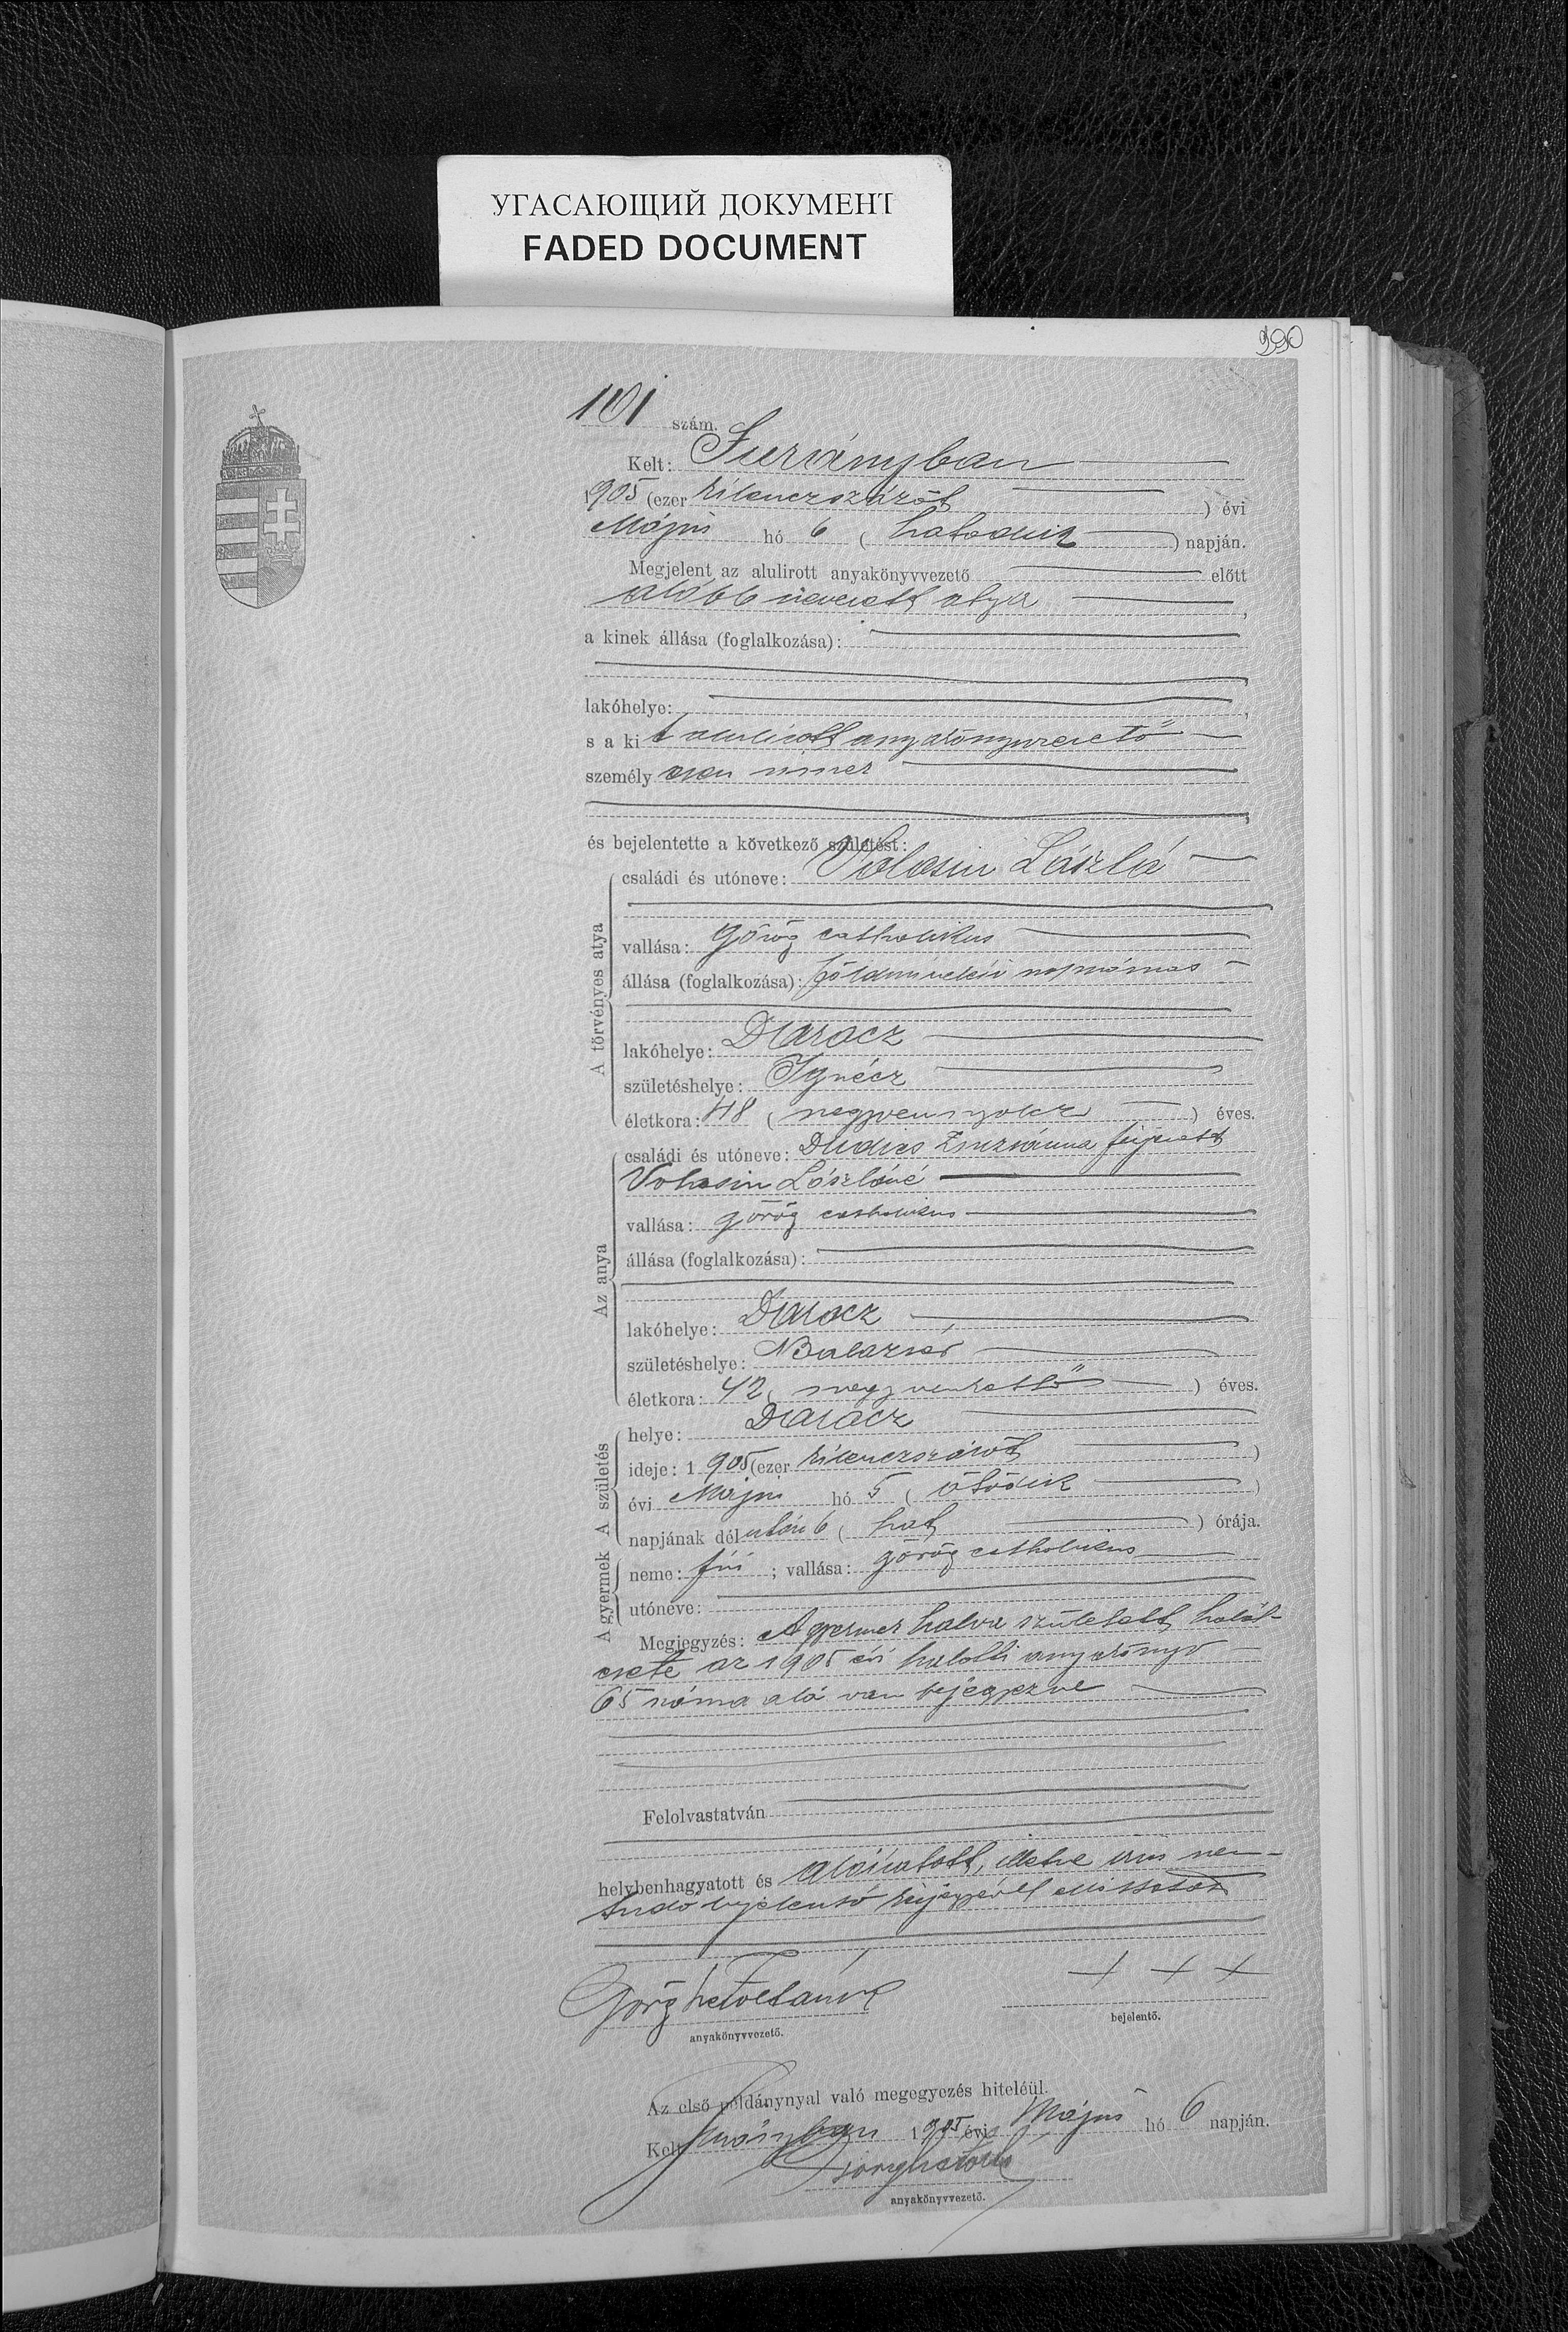 УГАСАЮЩИЙ ДОКУМЕНТ
FADED DOCUMENT
390
101 szám.
Kelt: Iuriányban
1905 (ezer kilenczszázöt) évi
Május hó 6 (hatodik) napján.
Megjelent az alulirott anyakönyvvezető előtt
alább nevezett atya,
a kinek állása (foglalkozása):
lakóhelye:
s a kit alulírott anyakönyvvezető
személyesen ismer
és bejelentette a következő születést:
A törvényes atya
családi és utóneve: Volosin László
vallása: görög catholikus
állása (foglalkozása): földmívelési napszámos
lakóhelye: Darócz
születéshelye: Ignécz
életkora: 48 (negyvennyolcz) éves.
Az anya
családi és utóneve: Dudics Zsuzsánna férjezett
Volosin Lászlóné
vallása: görög catholikus
állása (foglalkozása):
lakóhelye: Darócz
születéshelye: Balazsér
életkora: 42 (negyvenkettő) éves.
A születés
helye: Darócz
ideje: 1905 (ezer kilenczszázöt)
évi Május hó 5 (ötödik)
napjának délután 6 (hat) órája.
A gyermek
neme: fiú; vallása: görög catholikus
utóneve:
Megjegyzés: A gyermek halva született, halál-
esete az 1905 évi halotti anyakönyv
65 száma alá van bejegyezve
Felolvastatván
helybenhagyatott és aláíratott, illetve írni nem
tudó bejelentő kézjegyével elláttatott
+ + +
anyakönyvvezető.
bejelentő.
Az első példánynyal való megegyezés hiteléül.
Kelt 1905 évi Május hó 6 napján.
anyakönyvvezető.